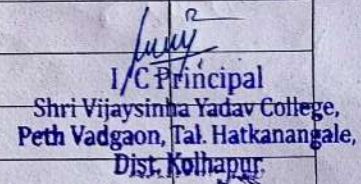 I/C Principal
Shri Vijaysinha Yadav College,
Peth Vadgaon, Tal. Hatkanangale,
Dist. Kolhapur.